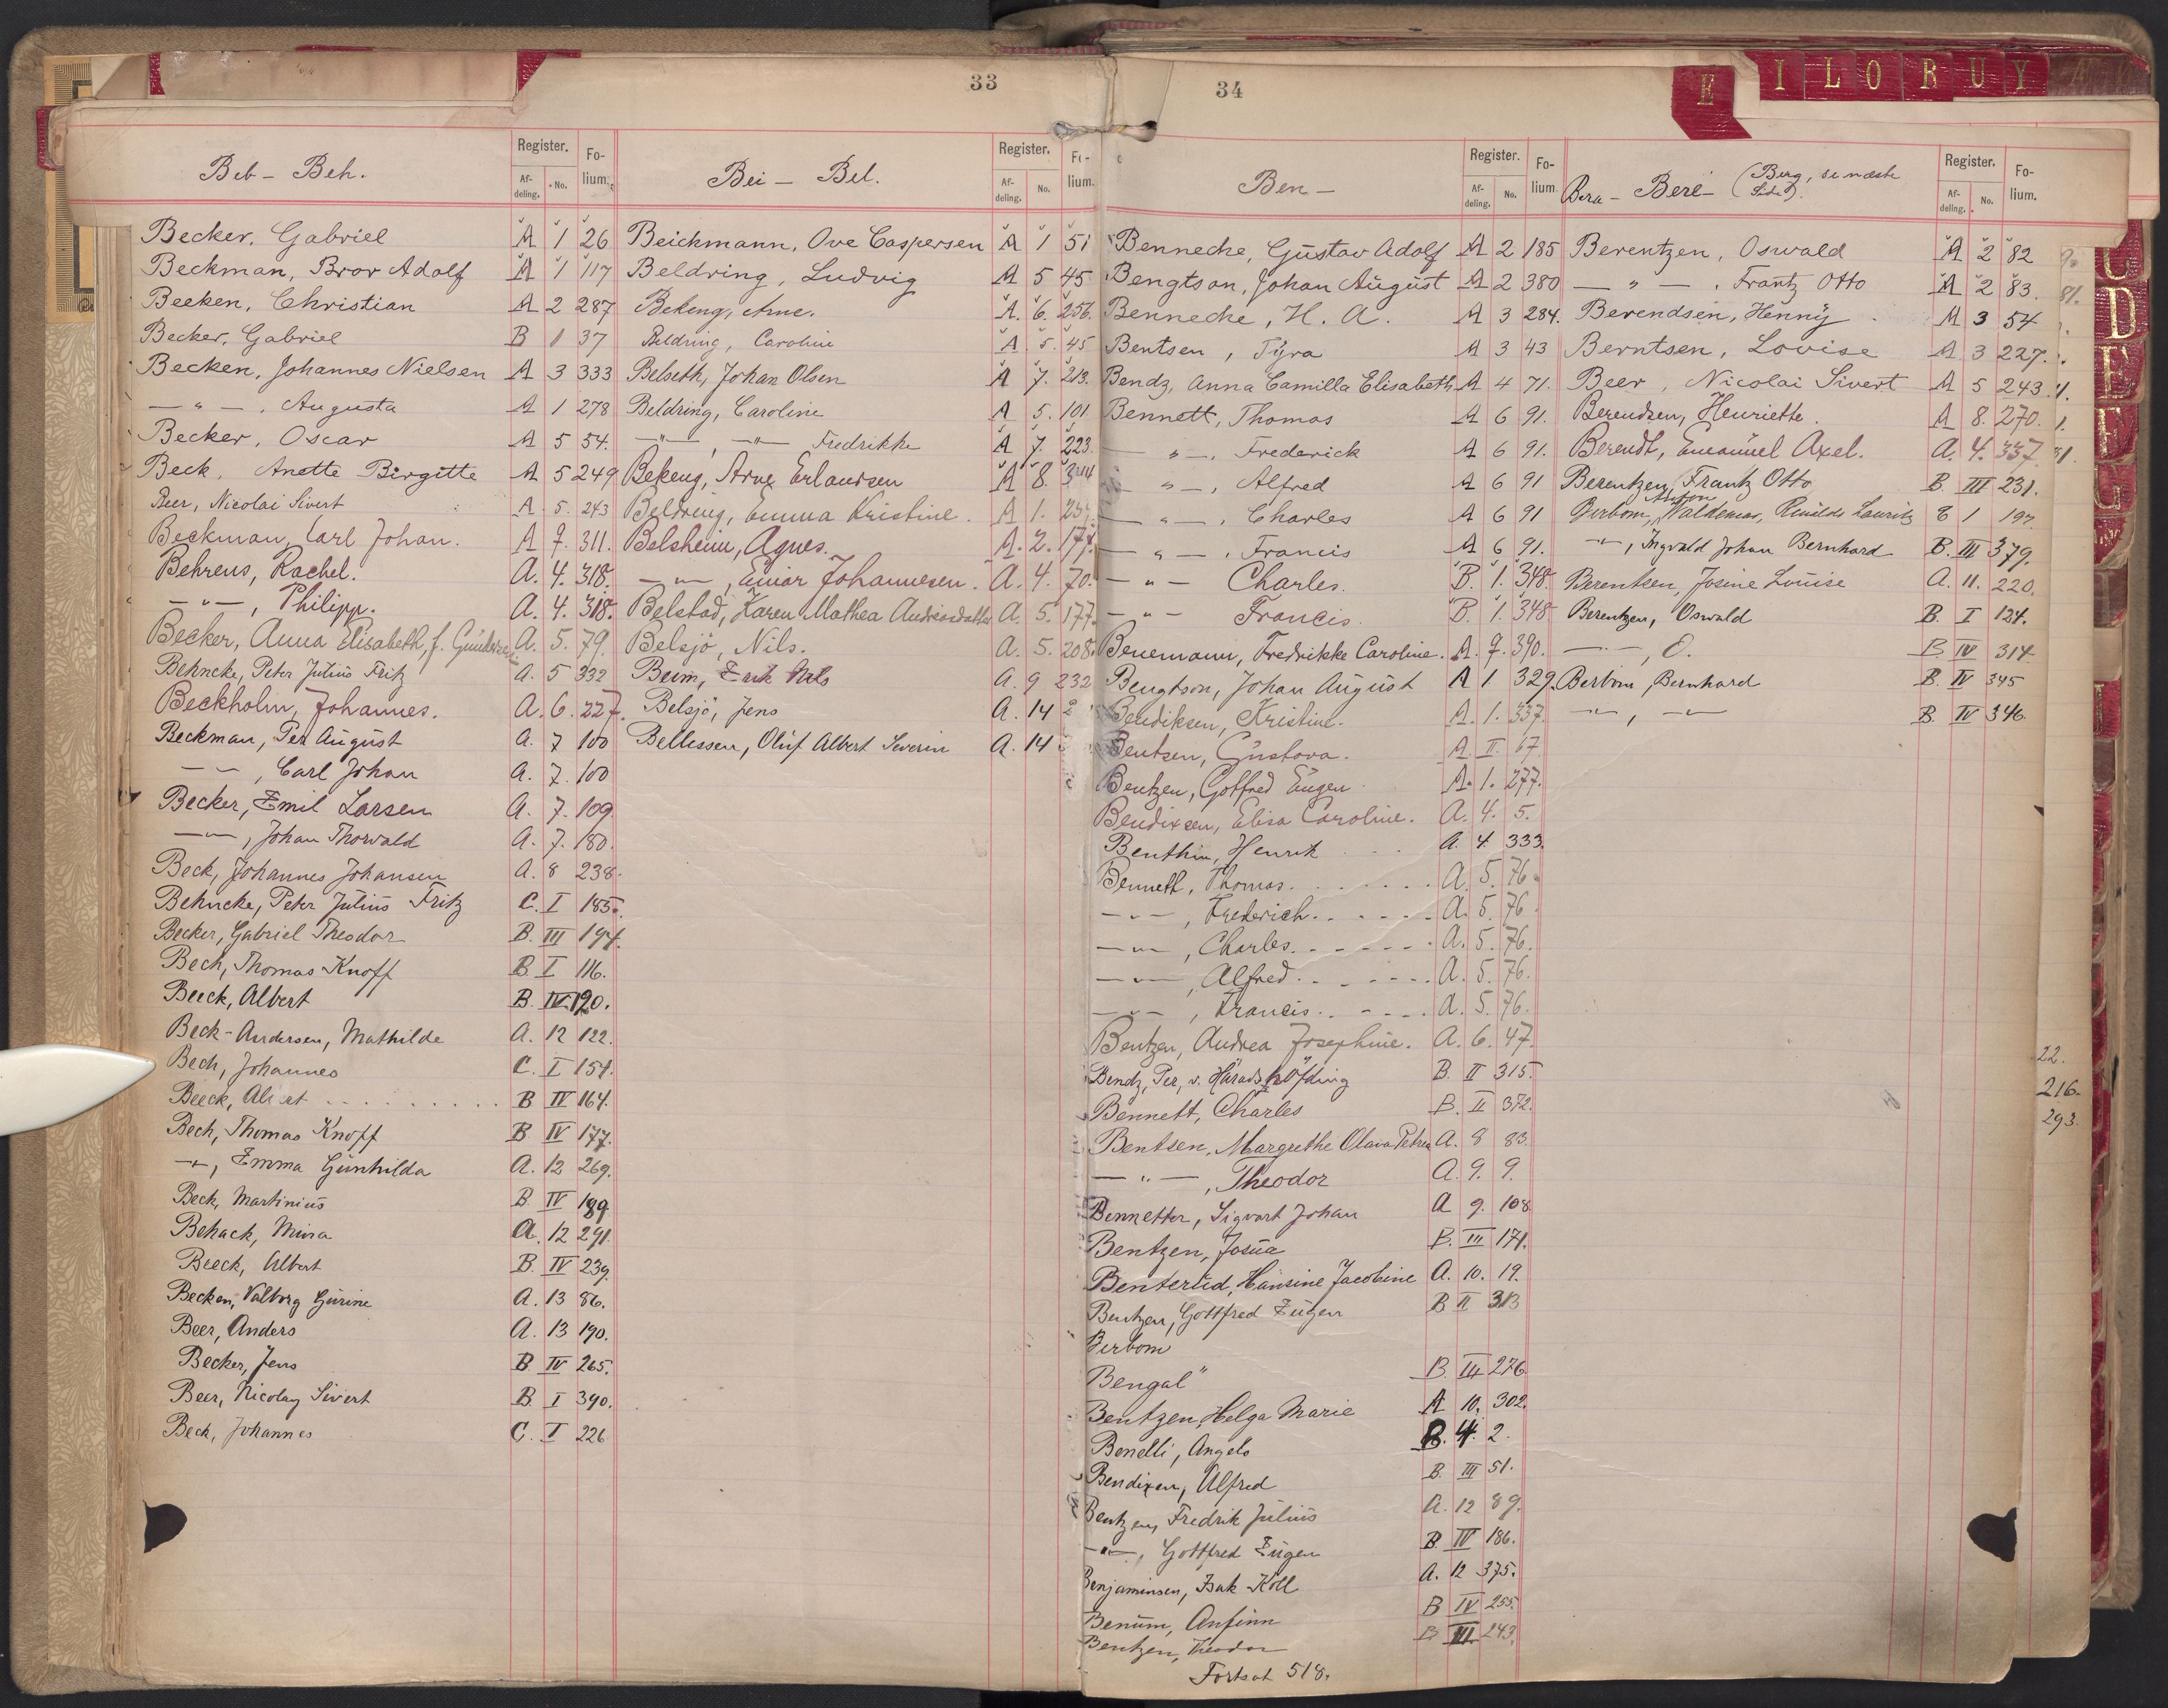 33
Beb - Beh.
Register.
Af-deling.
No.
Folium.
Becker, Gabriel A 1 26
Beckman, Bror Adolf A 1 117
Becken, Christian A 2 287
Becker, Gabriel B 1 37
Becken, Johannes Nielsen A 3 333
— " — , Augusta A 1 278
Becker, Oscar A 5 54.
Beck, Anette Birgitte A 5 249
Beer, Nicolai Sivert A. 5. 243
Beckman, Carl Johan. A 7. 311.
Behrens, Rachel. A. 4. 318.
— " — , Philipp. A. 4. 318.
Becker, Anna Elisabeth, f. A. 5. 79.
Behncke, Peter Julius Fritz A. 5 332
Beckholm, Johannes. A. 6. 227.
Beckman, Per August A. 7 100
— " — , Carl Johan A. 7. 100
Becker, Emil Larsen A. 7. 109.
— " — , Johan Thorvald A. 7. 180.
Beck, Johannes Johansen A. 8 238.
Behncke, Peter Julius Fritz C. I 185.
Becker, Gabriel Theodor B. III 194.
Bech, Thomas Knoff B. I 116.
Beeck, Albert B. IV 120.
Beck-Andersen, Mathilde A. 12 122.
Bech, Johannes C. I 154.
Beeck, Albert B IV 164.
Bech, Thomas Knoff B IV 177.
— " — , Emma Gunhilda A. 12 269.
Beck, Martinius B. IV 189.
Behack, Mina A. 12 291.
Beeck, Albert B. IV 239.
Becken, Valborg Gurine A. 13 86.
Beer, Anders A. 13 190.
Becker, Jens B. IV 265.
Beer, Nicolay Sivert B. I 390.
Beck, Johannes C. I 226
Bei - Bel.
Register.
Af-deling.
No.
Folium.
Beichmann, Ove Caspersen A 1 51
Beldring, Ludvig A 5 45
Bekeng, Arne. A. 6. 256.
Beldring, Caroline A. 5. 45
Belseth, Johan Olsen A 7. 213.
Beldring, Caroline A 5. 101
— " — , — " — Fredrikke A 7. 223.
Bekeng, Arne Erlandsen A 8. 
Beldring, Emma Kristine. A 1. 
Belsheim, Agnes. A. 2. 174.
— " — , Einar Johannesen. A. 4. 70.
Belstad, Karen Mathea Andreasdatter A. 5. 177.
Belsjö, Nils. A. 5. 208.
Beim, Erik Nils A. 9 232
Belsjö, Jens A. 14 2
Bellessen, Oluf Albert Severin A. 14
34
Ben -
Register.
Af-deling.
No.
Folium.
Bennecke, Gustav Adolf A 2 185
Bengtson, Johan August A 2 380
Bennecke, H. A. A 3 284.
Bentsen, Tyra A 3 43
Bendz, Anna Camilla Elisabeth A 4 71.
Bennett, Thomas A 6 91.
— " — , Frederick A 6 91.
— " — , Alfred A 6 91
— " — , Charles A 6 91
— " — , Francis A 6 91.
— " — Charles. B. 1. 348.
— " — Francis. B. 1. 348
Benemann, Fredrikke Caroline. A. 7. 390.
Bengtson, Johan August A 1 329.
Bendiksen, Kristine. A. 1. 337.
Bentsen, Gustava. A. II. 67
Bentzen, Gotfred Eugen. A. 1. 277.
Bendixsen, Elisa Caroline. A. 4. 5.
Benthin, Henrik A. 4. 333.
Bennett, Thomas. A. 5. 76
— " — , Frederich. A. 5. 76.
— " — , Charles. A. 5. 76.
— " — , Alfred. A. 5. 76.
— " — , Francis. A. 5. 76.
Bentzen, Andrea Josephine. A. 6. 47.
Bendz, Per, v. Häradshöfding B. II 315.
Bennett, Charles B. II 372.
Bentsen, Margrethe Olava Petrea A. 8 83.
— " — , Theodor A. 9. 9.
Bennetter, Sigvart Johan A 9. 108
Bentzen, Josua B. III 171.
Benterud, Hansine Jacobine A. 10. 19.
Bentzen, Gottfred Eugen B II 313
Berbom
Bengal" B. III 276.
Bentzen, Helga Marie A 10. 302.
Benelli, Angelo B. 4. 2.
Bendixen, Alfred B. III 51.
Bentzen, Fredrik Julius A. 12 89.
— " — , Gottfred Eugen B IV 186.
Benjaminsen, Isak Koll A. 12 375.
Benum, Anfinn B IV 255.
Bentzen, Theodor B III. 243.
Fortsat 518.
Bera - Bere (Berg, se næste Side).
Register.
Af-deling.
No.
Folium.
Berentzen, Oswald A 2 82
— " — , Frantz Otto A 2 83.
Berendsen, Henny A 3 54
Berntsen, Lovise A 3 227.
Beer, Nicolai Sivert A 5 243
Berendsen, Henriette. A 8. 270.
Berendt, Emanuel Axel. A. 4. 337.
Berentzen, Frantz Otto B. III 231.
Berbom, Anton Valdemar, Reinilds Laurits 1 197.
— " — , Ingvald Johan Bernhard B. III 379.
Berentsen, Josine Louise A. 11. 220.
Berentzen, Oswald B. I 124.
— " — , O. B. IV 314
Berbom, Bernhard B. IV 345
— " — , — " — B. IV 346.
22.
216.
293.
E I L O R U Y
C D E F G